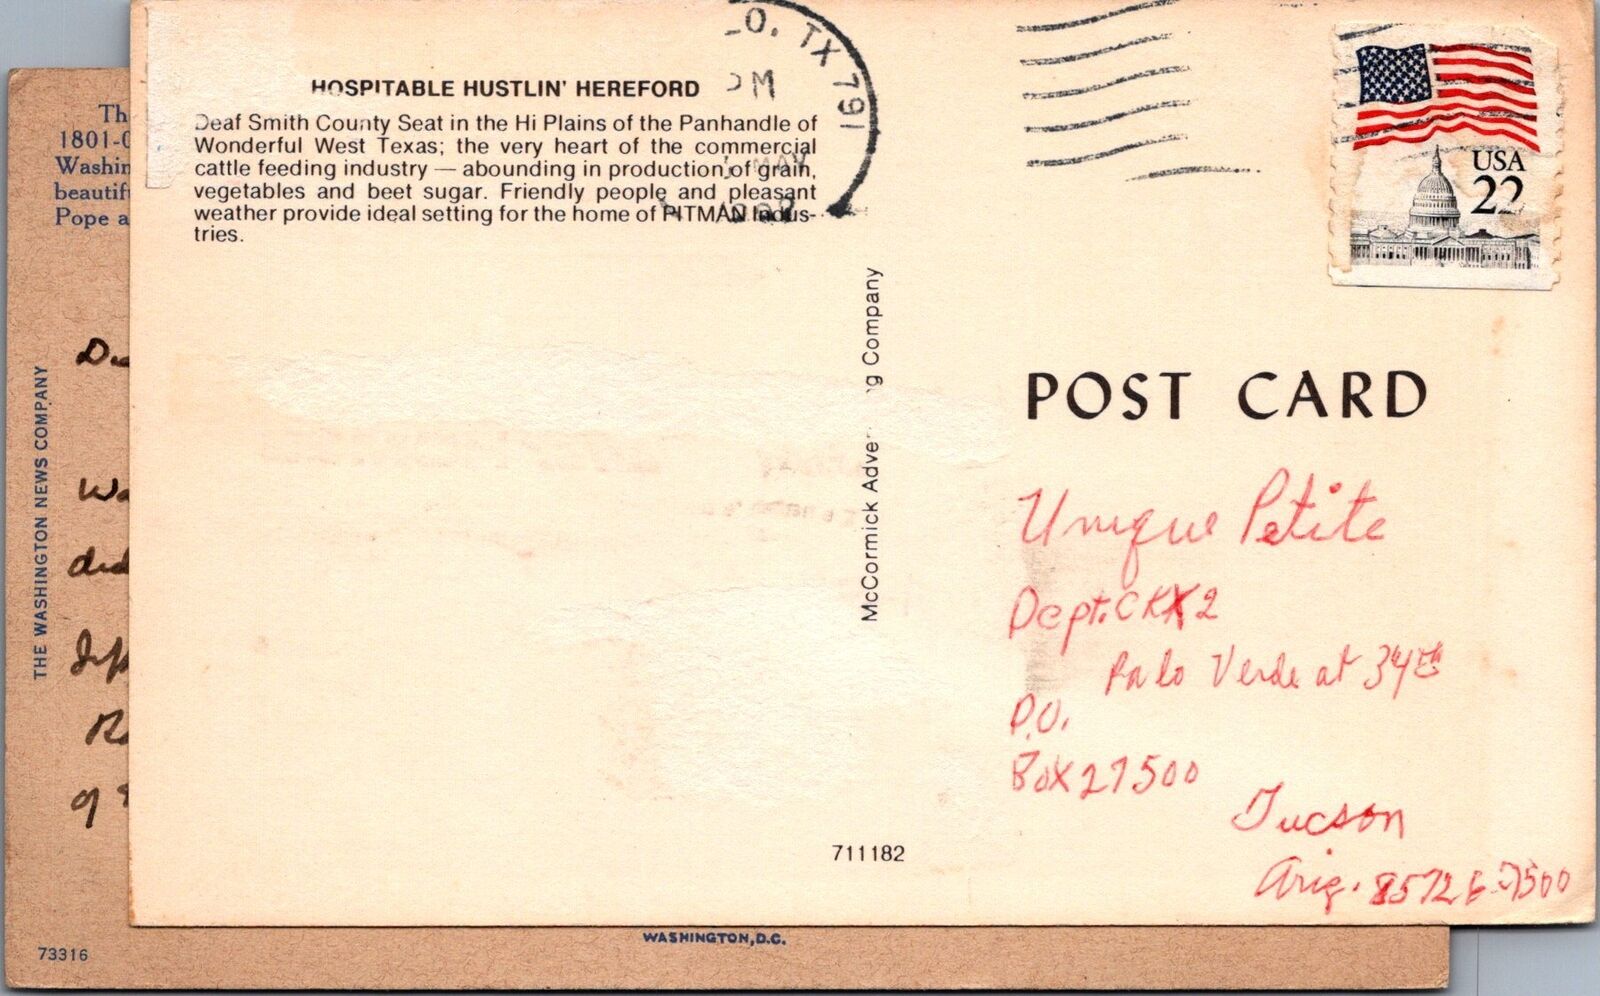 HOSPITABLE HUSTLIN' HEREFORD
Deaf Smith County Seat in the Hi Plains of the Panhandle of
Wonderful West Texas; the very heart of the commercial
cattle feeding industry — abounding in production of grain,
vegetables and beet sugar. Friendly people and pleasant
weather provide ideal setting for the home of PITMAN Indus-
tries.
O, TX 791
PM
MAY
USA
22
McCormick Adve g Company
POST CARD
Unique Petite
Dept. CKX2
Palo Verde at 34th
P.O.
Box 27500
Tucson
Ariz. 85726-7500
711182
Th
1801-0
Washin
beautif
Pope a
THE WASHINGTON NEWS COMPANY
De
Wa
did
of
73316
WASHINGTON, D.C.